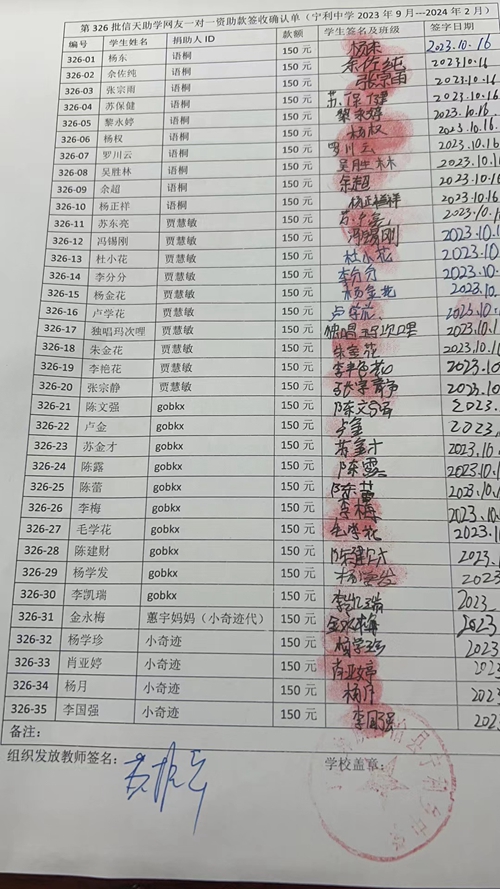 第 326 批信天助学网友一对一资助款签收确认单（宁利中学 2023 年 9 月---2024 年 2 月）
编号 学生姓名 捐助人 ID 款额 学生签名及班级 签字日期
326-01 杨东 语桐 150 元 杨东 2023.10.16
326-02 余佐纯 语桐 150 元 余佐纯 2023.10.16
326-03 张宗雨 语桐 150 元 张宗雨 2023.10.16
326-04 苏保健 语桐 150 元 苏保健 2023.10.16
326-05 黎永婷 语桐 150 元 黎永婷 2023.10.16
326-06 杨权 语桐 150 元 杨权 2023.10.16
326-07 罗川云 语桐 150 元 罗川云 2023.10.16
326-08 吴胜林 语桐 150 元 吴胜林 2023.10.16
326-09 余超 语桐 150 元 余超 2023.10.16
326-10 杨正祥 语桐 150 元 杨正祥 2023.10.1
326-11 苏东亮 贾慧敏 150 元 2023.10.1
326-12 冯锡刚 贾慧敏 150 元 冯锡刚 2023.10.1
326-13 杜小花 贾慧敏 150 元 杜小花 2023.10.1
326-14 李分分 贾慧敏 150 元 李分分 2023.10.
326-15 杨金花 贾慧敏 150 元 杨金花 2023.10.
326-16 卢学花 贾慧敏 150 元 卢学花 2023.10.
326-17 独唱玛次哩 贾慧敏 150 元 2023.10.1
326-18 朱金花 贾慧敏 150 元 朱金花 2023.10.1
326-19 李艳花 贾慧敏 150 元 李艳花 2023.10
326-20 张宗静 贾慧敏 150 元 张宗静 2023.10
326-21 陈文强 gobkx 150 元 陈文强 2023.
326-22 卢金 gobkx 150 元 卢金 2023.
326-23 苏金才 gobkx 150 元 苏金才 2023.10
326-24 陈露 gobkx 150 元 陈露 2023.10
326-25 陈蕾 gobkx 150 元 陈蕾 2023.10.
326-26 李梅 gobkx 150 元 李梅 2023.10.
326-27 毛学花 gobkx 150 元 毛学花 2023.10
326-28 陈建财 gobkx 150 元 2023.
326-29 杨学发 gobkx 150 元 杨学发 2023
326-30 李凯瑞 gobkx 150 元 李凯瑞 2023
326-31 金永梅 蕙宇妈妈（小奇迹代） 150 元 金永梅 2023
326-32 杨学珍 小奇迹 150 元 杨学珍 2023
326-33 肖亚婷 小奇迹 150 元 肖亚婷 2023
326-34 杨月 小奇迹 150 元 杨月 2023
326-35 李国强 小奇迹 150 元 李国强 202
备注：
组织发放教师签名： 学校盖章：